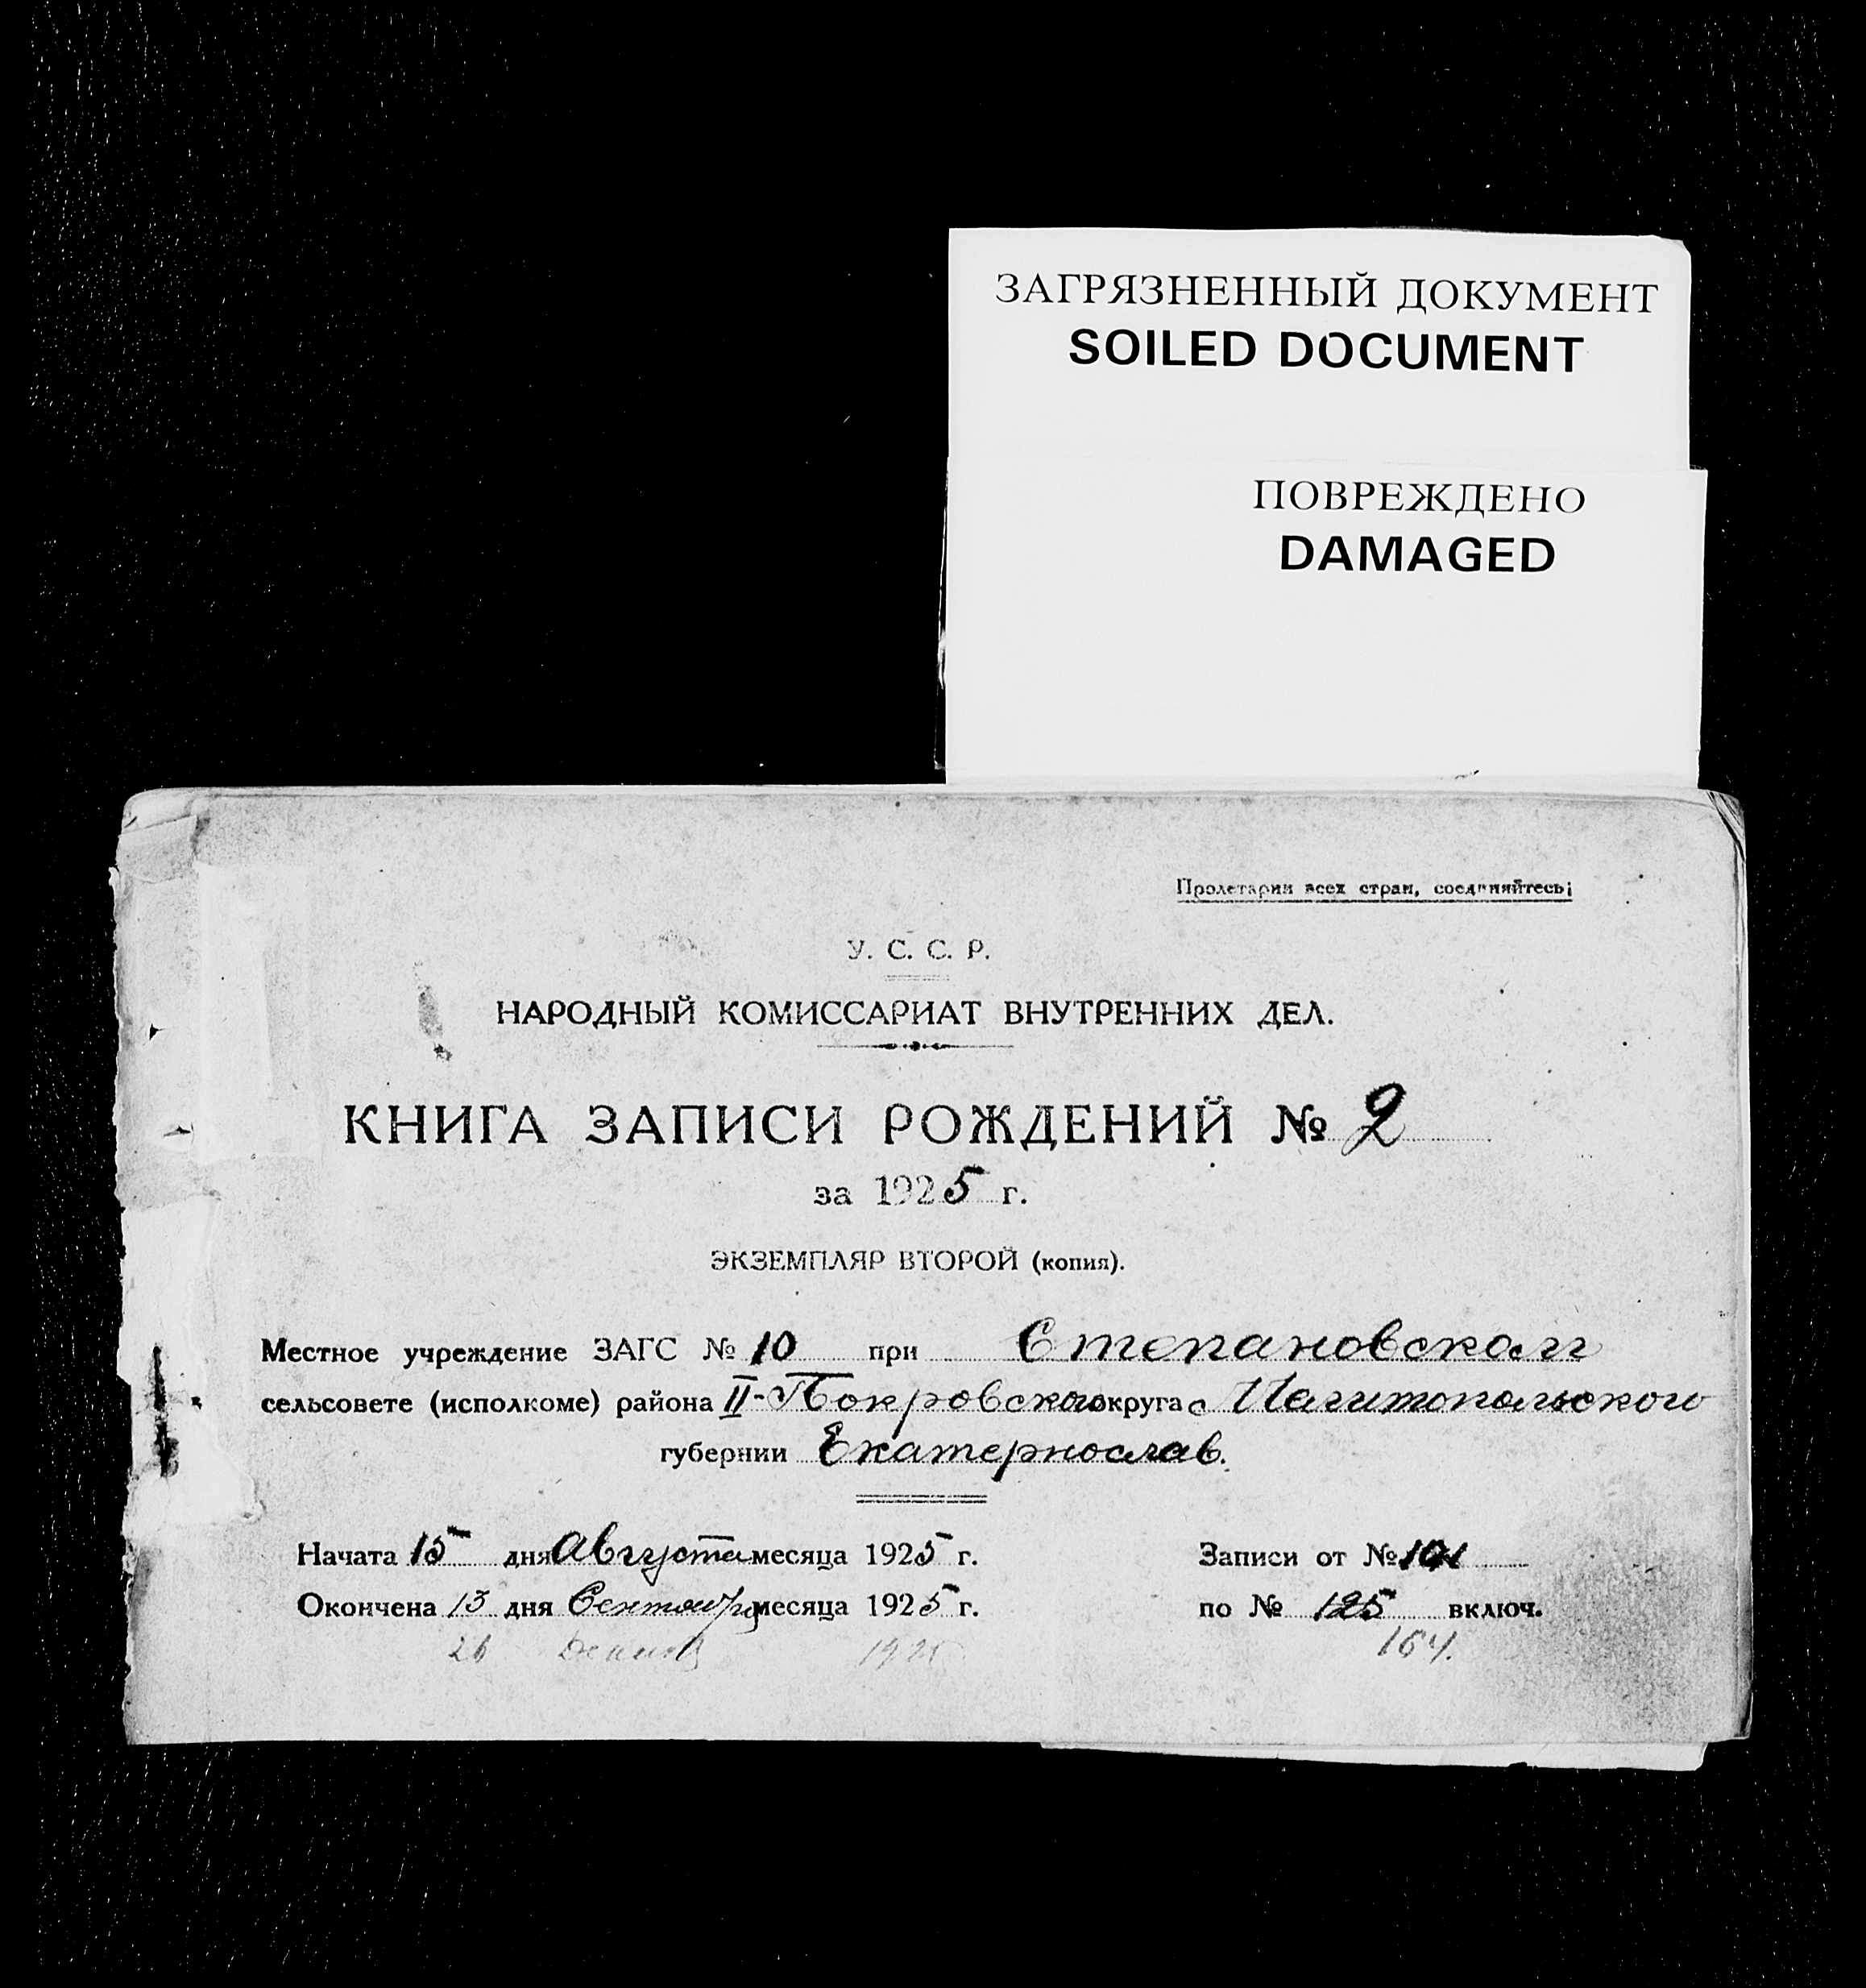 ЗАГРЯЗНЕННЫЙ ДОКУМЕНТ
SOILED DOCUMENT
ПОВРЕЖДЕНО
DAMAGED
Пролетарии всех стран, соединяйтесь¡
У. С. С. Р.
НАРОДНЫЙ КОМИССАРИАТ ВНУТРЕННИХ ДЕЛ.
КНИГА ЗАПИСИ РОЖДЕНИЙ № 2
за 1925 г.
ЭКЗЕМПЛЯР ВТОРОЙ (копия).
Местное учреждение ЗАГС № 10 при Степановском
сельсовете (исполкоме) района II-Покровского округа
губернии Екатернослав.
Начата 15 дня Августа месяца 1925 г.
Записи от № 101
Окончена 13 дня Сентобря месяца 1925 г.
по № 125 включ.
26 1925
164.